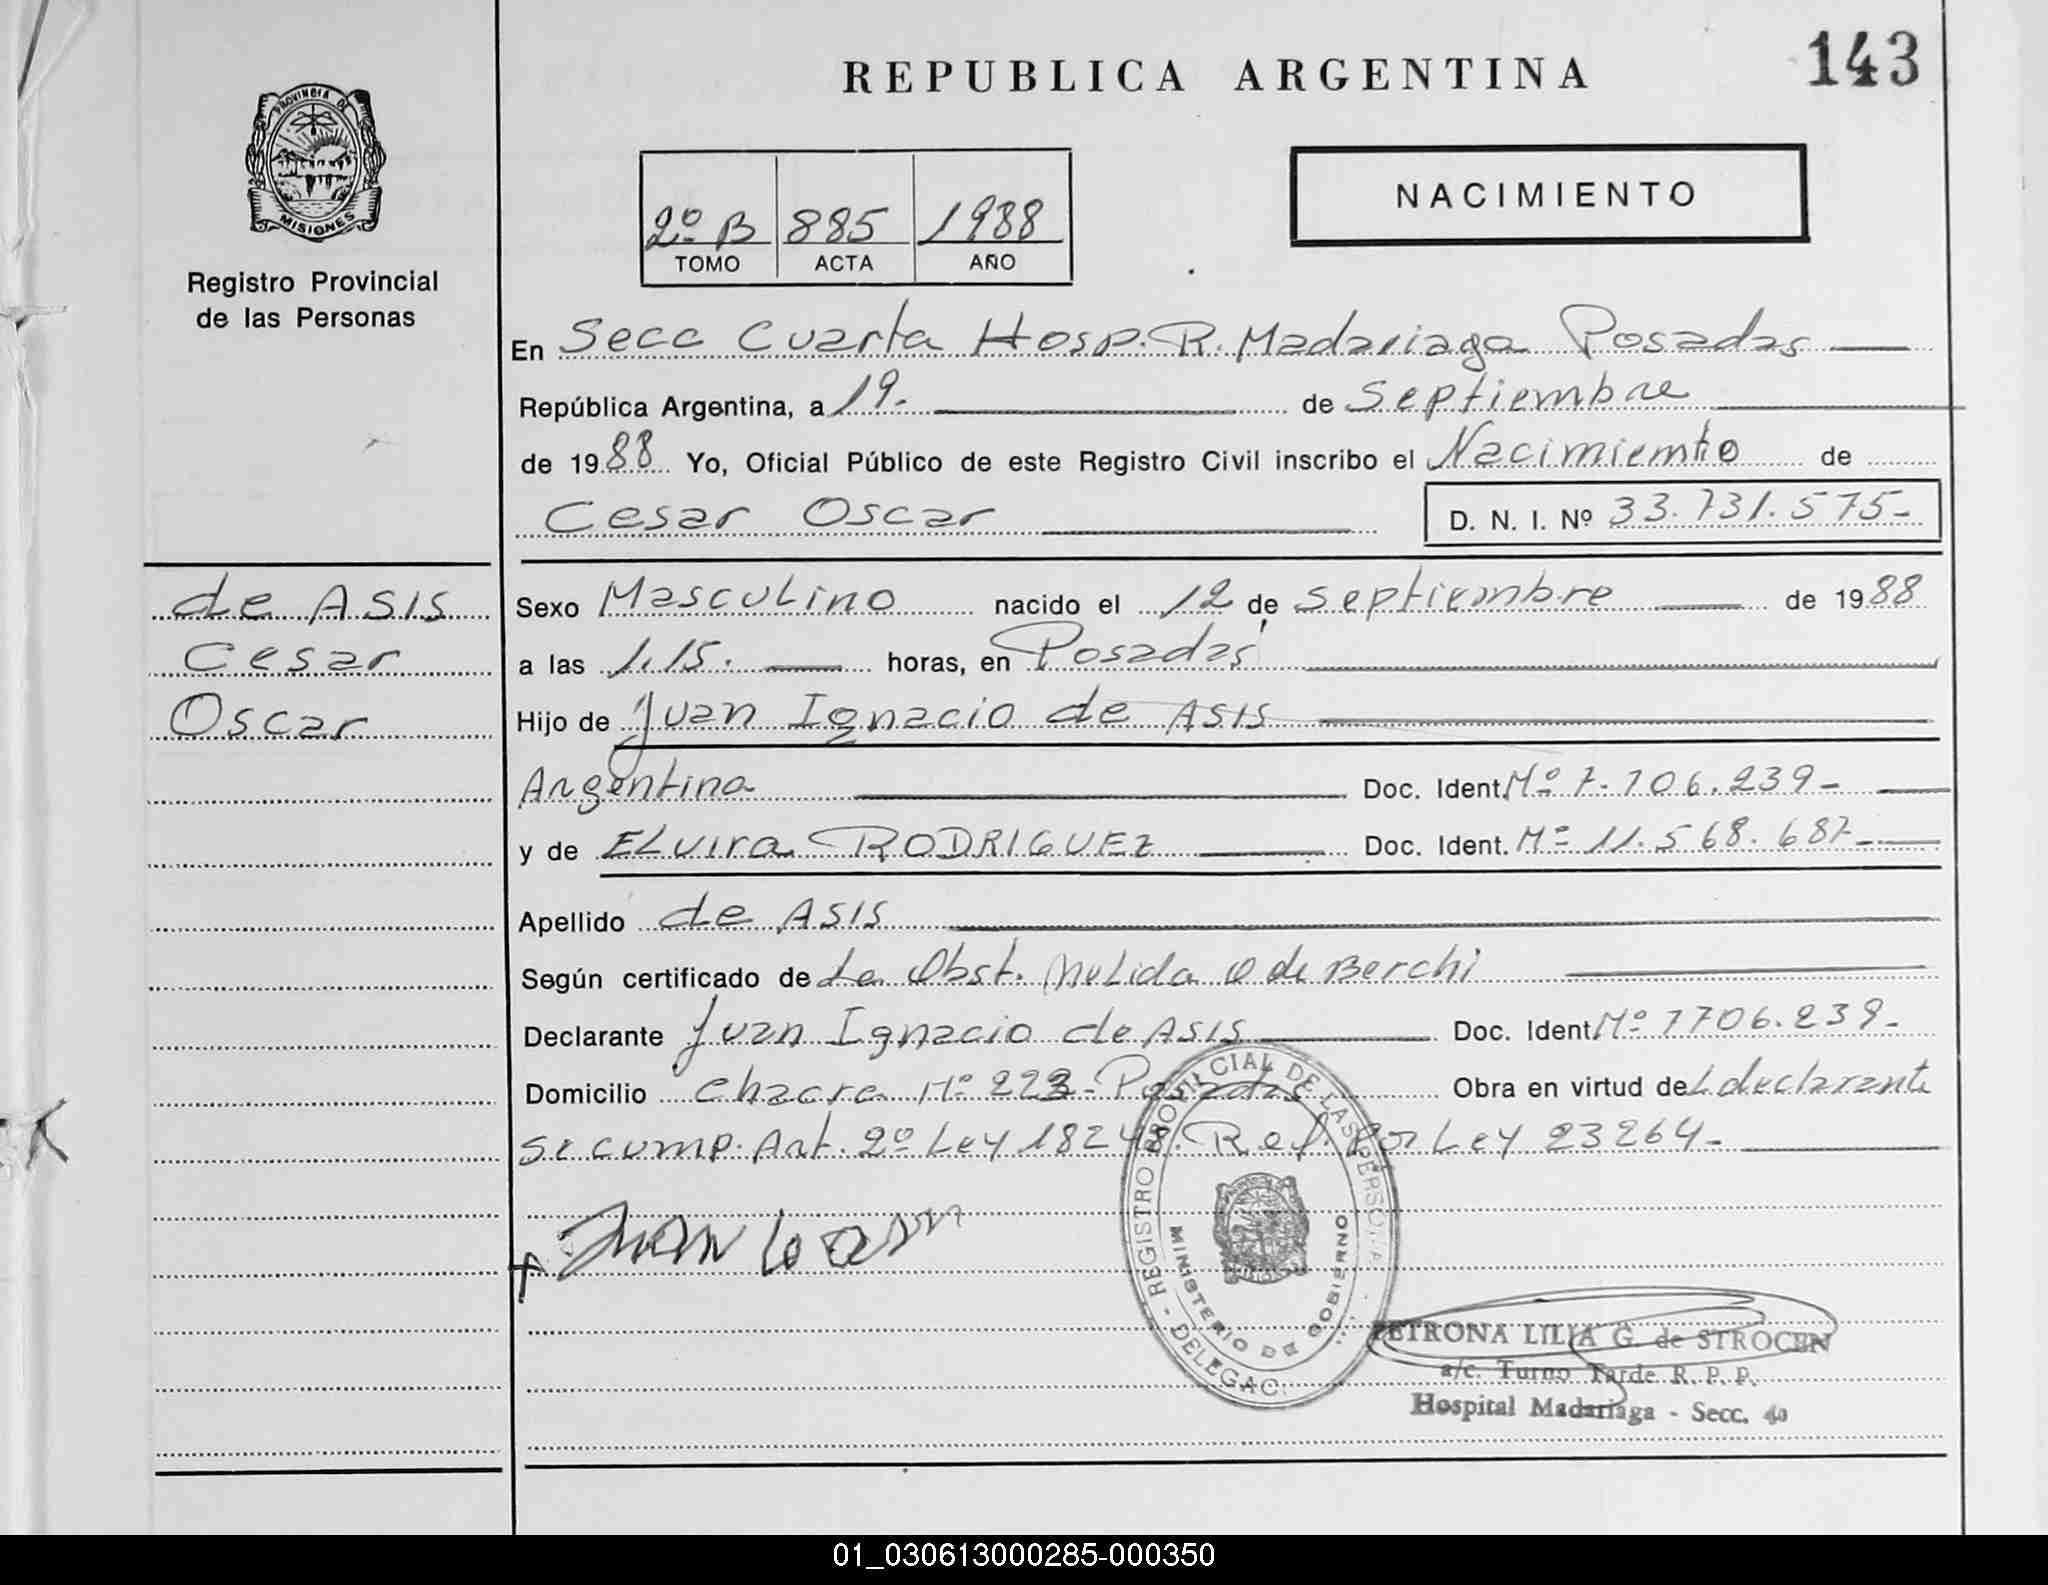 REPUBLICA ARGENTINA
143
PROVINCIA DE
MISIONES
Registro Provincial
de las Personas
2º B 885 1988
TOMO ACTA AÑO
NACIMIENTO
En Secc Cuarta Hosp. R. Madariaga Posadas
República Argentina, a 19. de Septiembre
de 1988 Yo, Oficial Público de este Registro Civil inscribo el Nacimiento de
Cesar Oscar
D. N. I. Nº 33.731.575-
de ASIS
Cesar
Oscar
Sexo Masculino nacido el 12 de Septiembre de 1988
a las 1.15. horas, en Posadas
Hijo de Juan Ignacio de ASIS
Argentina Doc. Ident. Nº 7.706.239-
y de ELvira RODRIGUEZ Doc. Ident. Nº 11.568.687-
Apellido de ASIS
Según certificado de La Obst. Nelida O de Berchi
Declarante Juan Ignacio de ASIS Doc. Ident. Nº 7706.239-
Domicilio Chacra Nº 223- Posadas Obra en virtud de L declarante
se cump. Art. 2º Ley 18248. Ref. Por Ley 23264-
Juan
REGISTRO PROVINCIAL DE LAS PERSONAS
MINISTERIO DE GOBIERNO
DELEGAC.
PETRONA LILIA G. de STROCEN
a/c. Turno Tarde R. P. P.
Hospital Madariaga - Secc. 4a
01_030613000285-000350